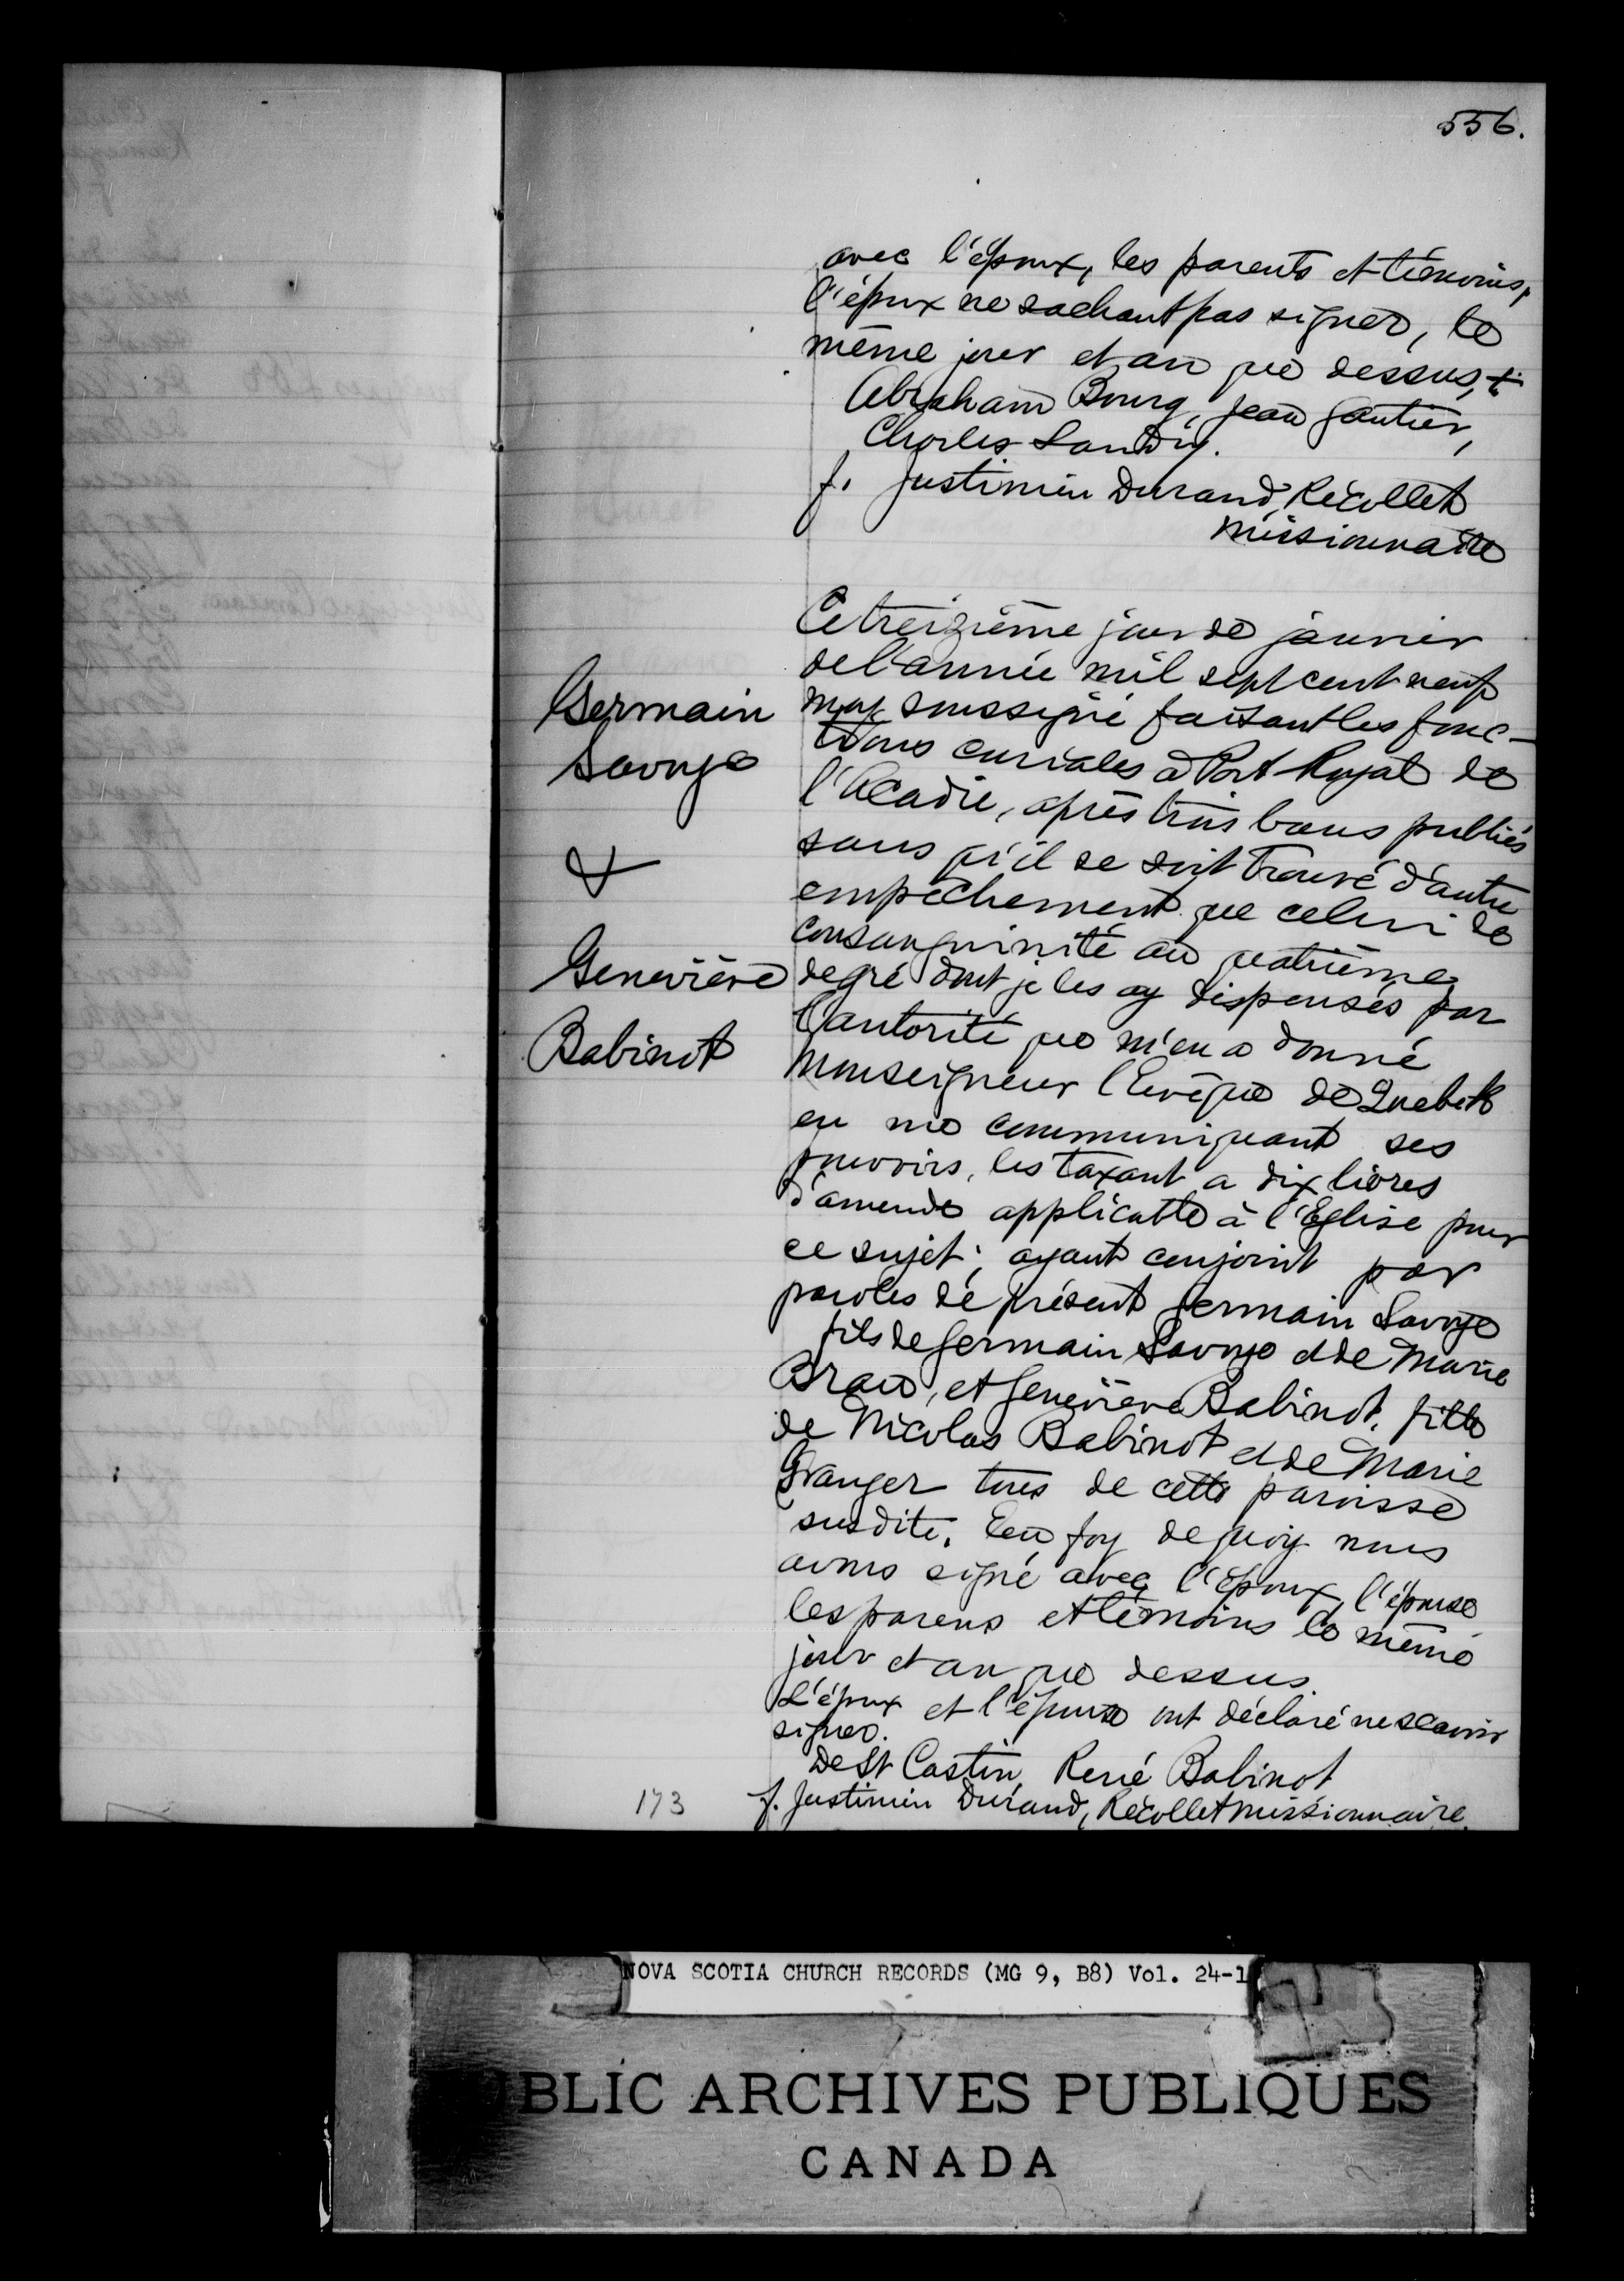 556.
avec l'époux, les parents et témoins,
l'époux ne sachant pas signer, le
même jour et an que dessus, +
Abraham Bourg, Jean Gautier,
Charles Landry.
f. Justinien Durand, Récollet
Missionnaire
Germain
Savoye
&
Geneviève
Babinot
Ce treizième jour de janvier
de l'année mil sept cent neuf
moy soussigné faisant les fonc-
tions curiales à Port Royal de
l'Acadie, après trois bans publiés
sans qu'il se soit trouvé d'autre
empêchement que celui de
consanguinité au quatrième
degré dont je les ay dispensés par
l'autorité que m'en a donné
Monseigneur l'Evêque de Quebek
en me communiquant ses
pouvoirs, les taxant a dix livres
d'amende applicable à l'Eglise pour
ce sujet; ayant conjoint par
paroles dé présent Germain Savoye
fils de Germain Savoye et de Marie
Brau, et Geneviève Babinot, fille
de Nicolas Babinot et de Marie
Granger tous de cette paroisse
susdite. En foy de quoy nous
avons signé avec l'époux, l'épouse
les parens et témoins le même
jour et an que dessus.
L'époux et l'épouse ont déclaré ne scavoir
signer.
De St Castin, René Babinot
f. Justinien Durand, Récollet missionnaire.
173
NOVA SCOTIA CHURCH RECORDS (MG 9, B8) Vol. 24-1
BLIC ARCHIVES PUBLIQUES
CANADA